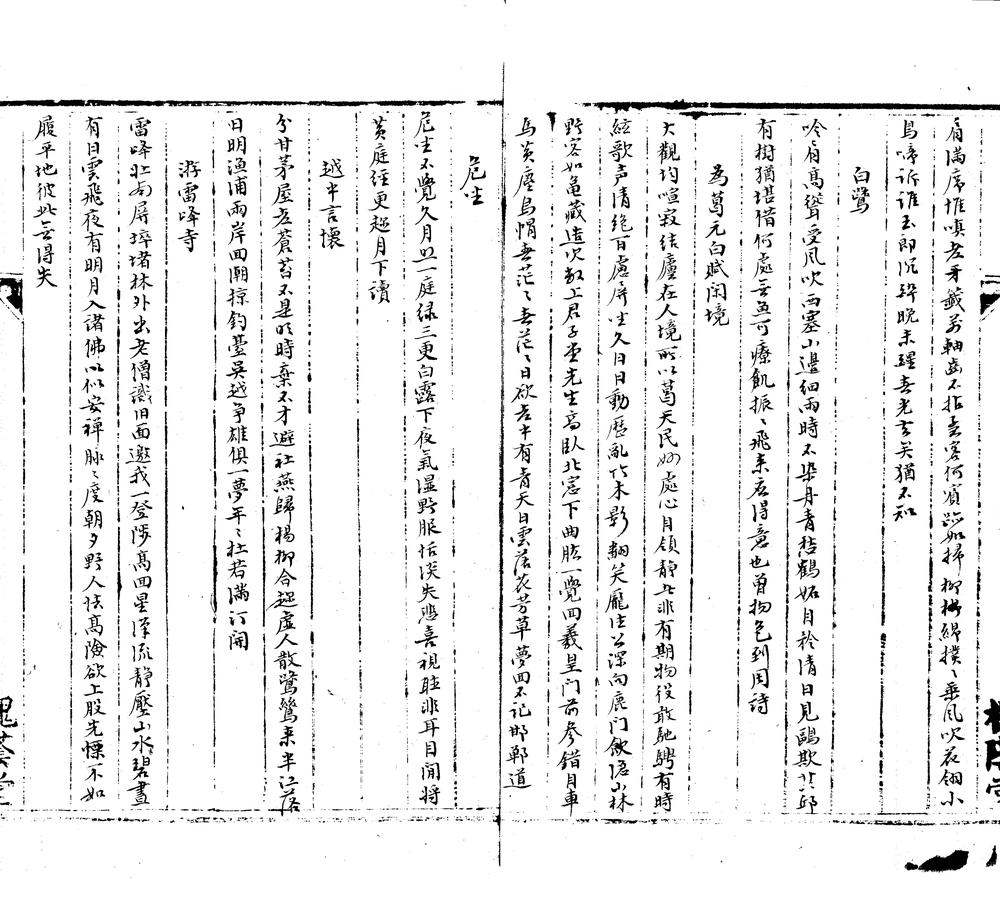 肩滿席堆嗔老牙籤萬軸亂不拈去客何賓跡如掃柳綿撲〻乘風吹花翎小
鳥啼訴誰玉即沉碎晚未醒春光去矣猶不知
白鷺
吟肩高聳受風吹西塞山邊細雨時不染丹青嵇鶴妬目於清日見鷗欺廿邱
有樹猶堪借何處無魚可療飢振〻飛來应得意也曾物色到周詩
為葛元白賦閒境
大觀均喧寂结廬在人境所以葛天民妙處心目領靜㐀非有期物役敢馳騁有時
絃歌声清绝百慮屏坐久日日動歷亂竹木影翻笑龐德公深向鹿門飲隐山林
野客如龜藏造次数上君子堂先生高臥北窓下曲肱一覺回羲皇门前參错自車
馬黄塵烏帽春茫〻春茫〻日欲去中有青天白雲落花芳草夢回不记邯鄲道
危坐
危坐不覺久月照一庭绿三更白露下夜氣濕野服恬淡失悲喜視聽非耳目閒將
黄庭經更趁月下讀
越中言懷
分甘茅屋老蒼苔不是明時棄不才避社燕歸楊柳合趂虛人散鷺鷥来半江落
日明渔浦兩岸回潮掠釣臺吳越争雄俱一夢年〻杜若满汀開
游雷峰寺
雷峰壮南屏埣堵林外出老僧識旧面邀我一登陟高回星渾流靜壓山水碧晝
有日雲飛夜有明月入诸佛以似安禪脉〻度朝夕野人怯高險欲上股先慄不如
履平地彼此無得失